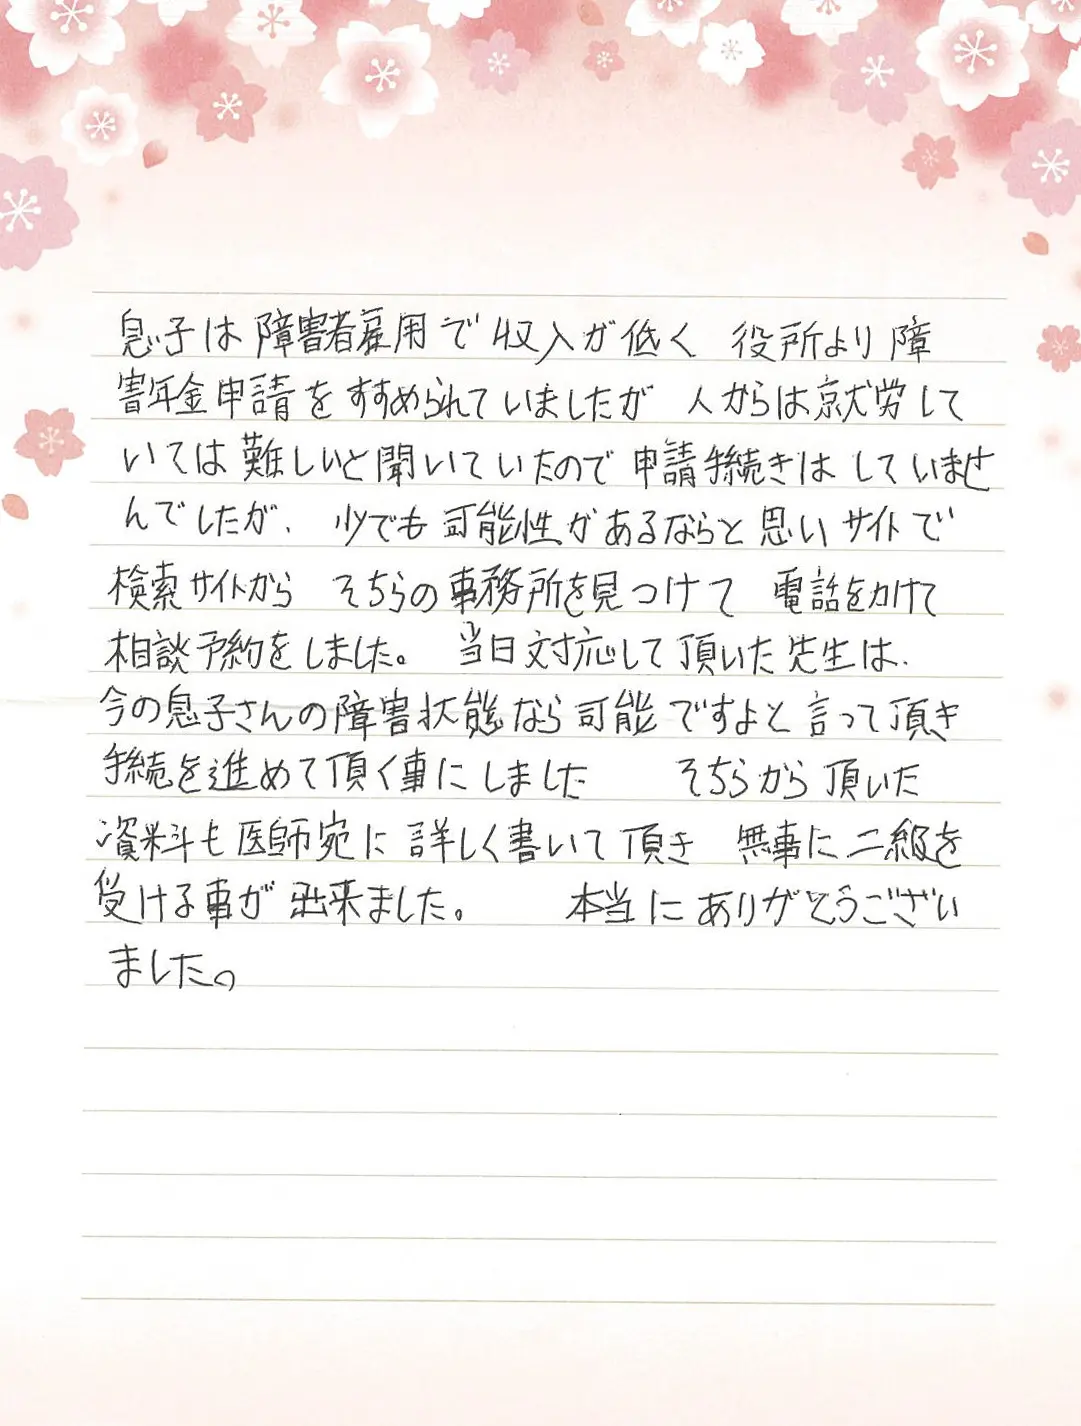 息子は障害者雇用で収入が低く 役所より障
害年金申請をすすめられていましたが 人からは就労して
いては難しいと聞いていたので申請手続きはしていませ
んでしたが、 少でも可能性があるならと思いサイトで
検索サイトから そちらの事務所を見つけて 電話をかけて
相談予約をしました。 当日対応して頂いた先生は、
今の息子さんの障害状態なら可能ですよと言って頂き
手続を進めて頂く事にしました そちらから頂いた
資料も医師宛に詳しく書いて頂き 無事に二級を
受ける事が出来ました。 本当にありがとうござい
ました。